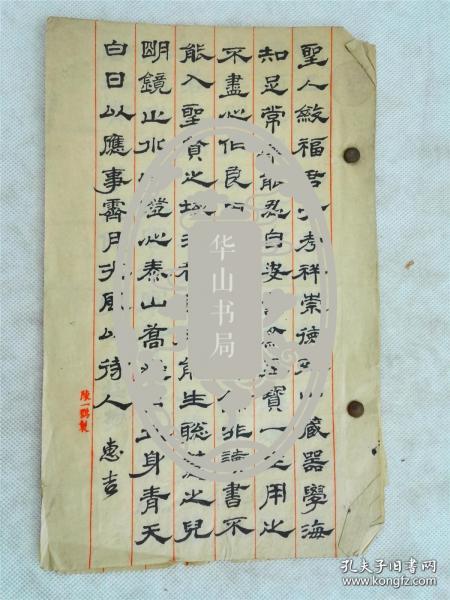 聖人斂福君子考祥崇德山藏器學海
知足常樂能忍自安寶一生用之
不盡心作良非讀書不
能入聖賢之域非能生聰慧之兒
明鏡止水以澄心泰山喬立身青天
白日以應事霽月光風以待人 惠吉
陳一鶴製
华山书局
孔夫子旧书网
www.kongfz.com